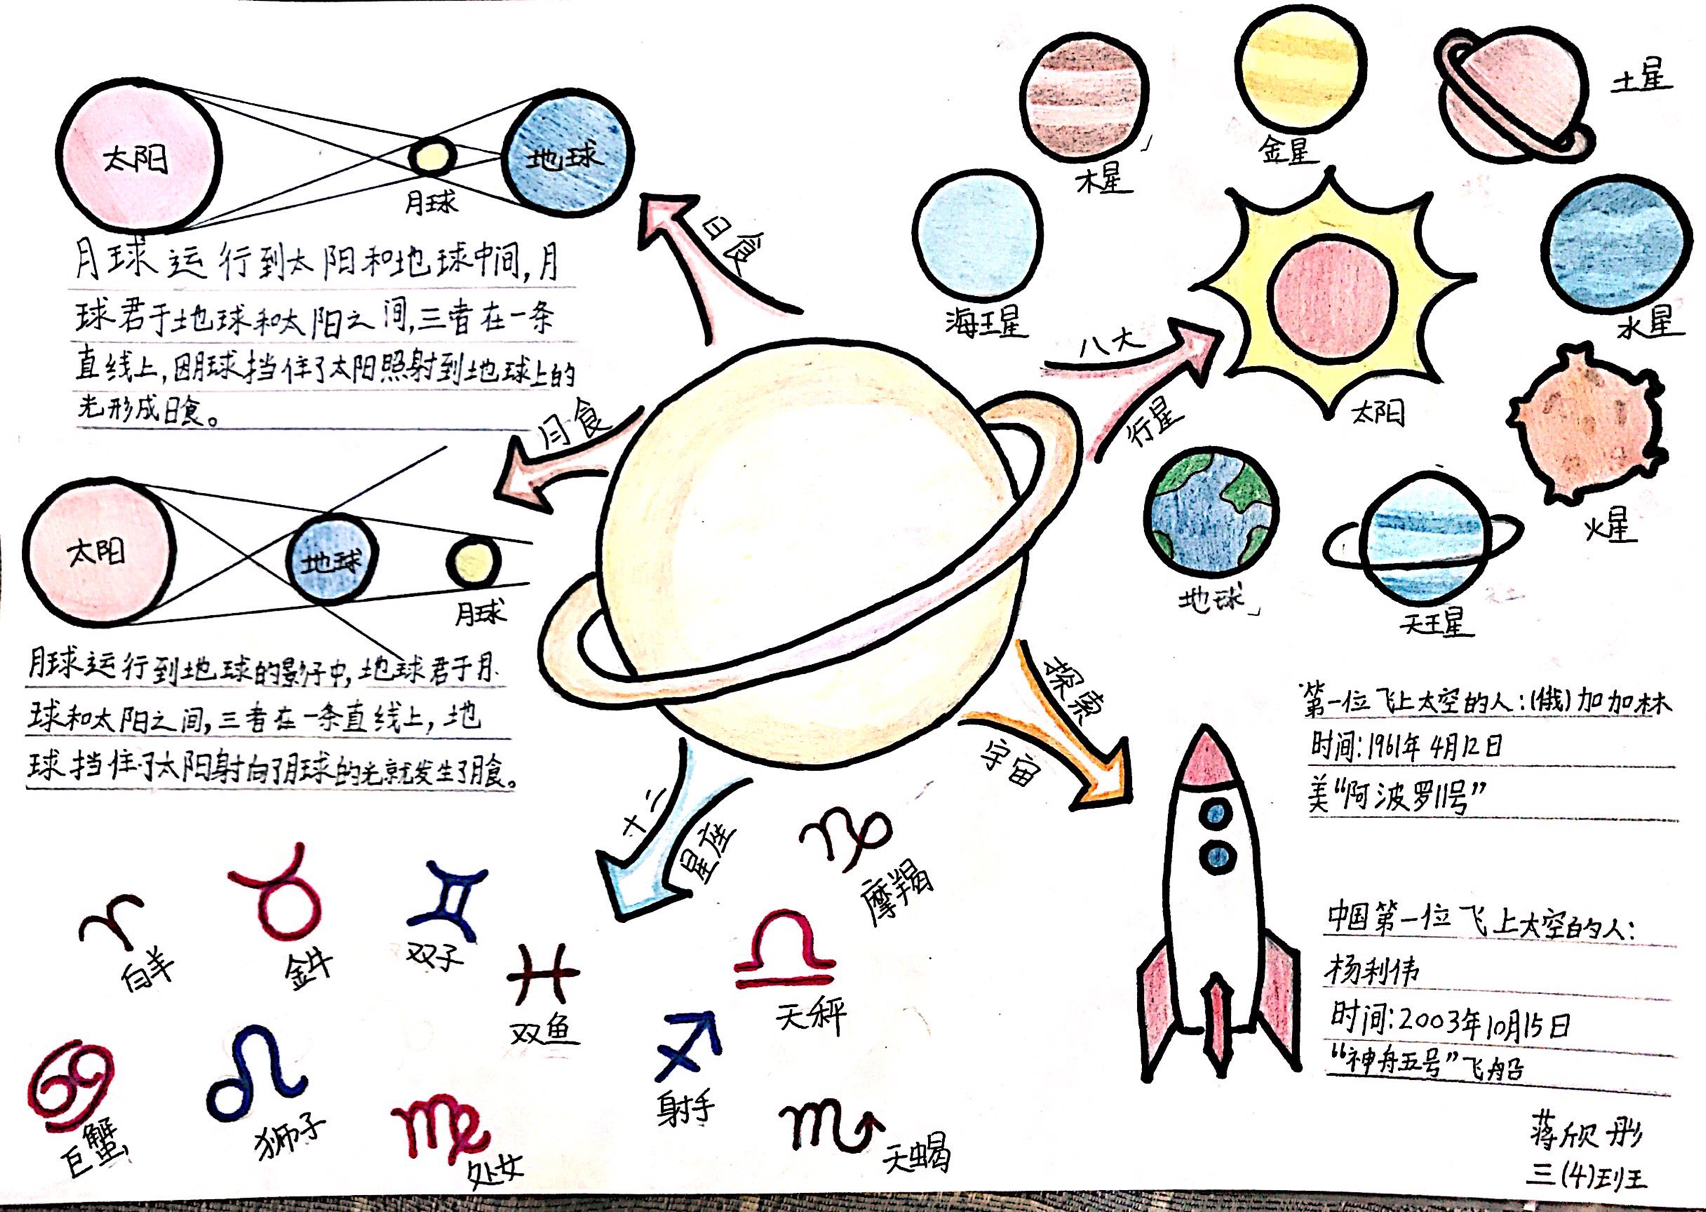 太阳
月球
地球
月球运行到太阳和地球中间,月
球君于地球和太阳之间,三者在一条
直线上,因月球挡住了太阳照射到地球上的
光形成日食。
日食
月食
太阳
地球
月球
月球运行到地球的影子中,地球君于月
球和太阳之间,三者在一条直线上,地
球挡住了太阳射向了月球的光就发生了月食。
木星
金星
土星
海王星
水星
八大
行星
太阳
火星
地球
天王星
探索
宇宙
第一位飞上太空的人:(俄)加加林
时间:1961年4月12日
美“阿波罗11号”
中国第一位飞上太空的人:
杨利伟
时间:2003年10月15日
“神舟五号”飞船
十二
星座
摩羯
白羊
金牛
双子
双鱼
天秤
巨蟹
狮子
处女
射手
天蝎
蒋欣彤
三(4)班